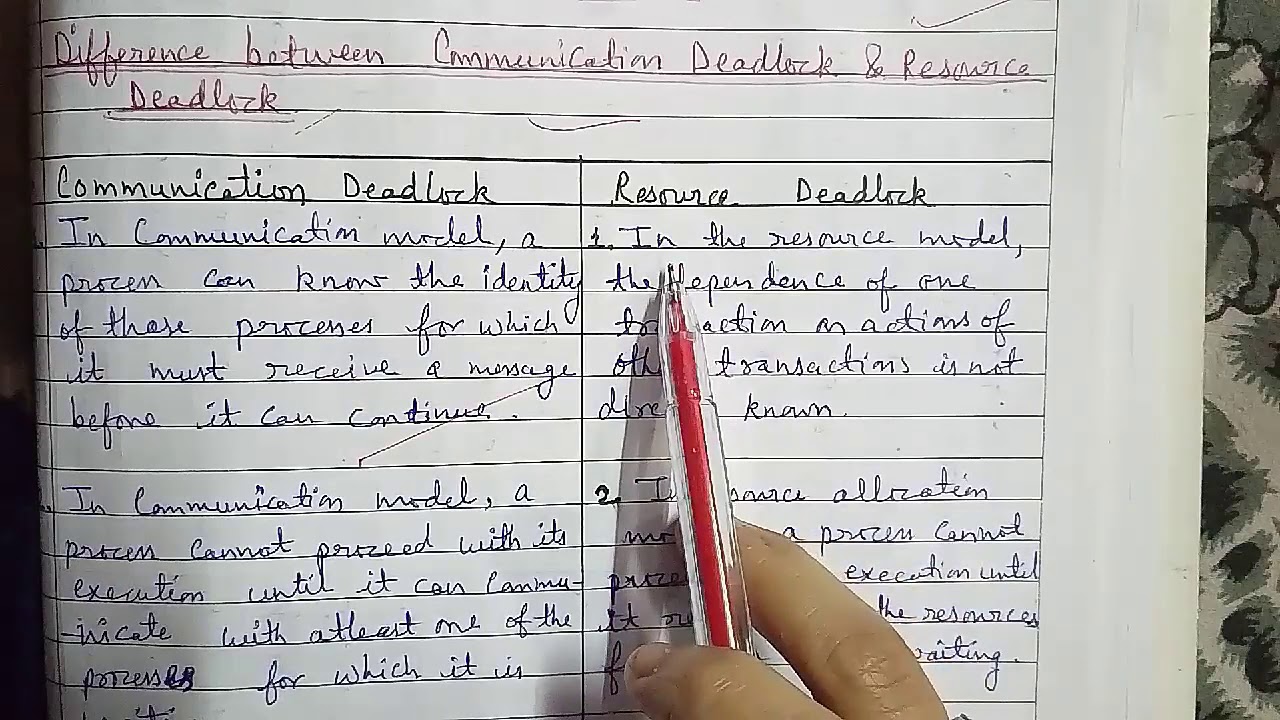 Difference between Communication Deadlock & Resource
Deadlock
Communication Deadlock
In Communication model, a
process can know the identity
of those processes for which
it must receive a message
before it can continue.
In Communication model, a
process cannot proceed with its
execution until it can Commu-
-nicate with atleast one of the
processes for which it is
Resource Deadlock
1. In the resource model,
the dependence of one
action on actions of
transactions is not
known.
2. allocation
a process cannot
execution until
it the resources
waiting.